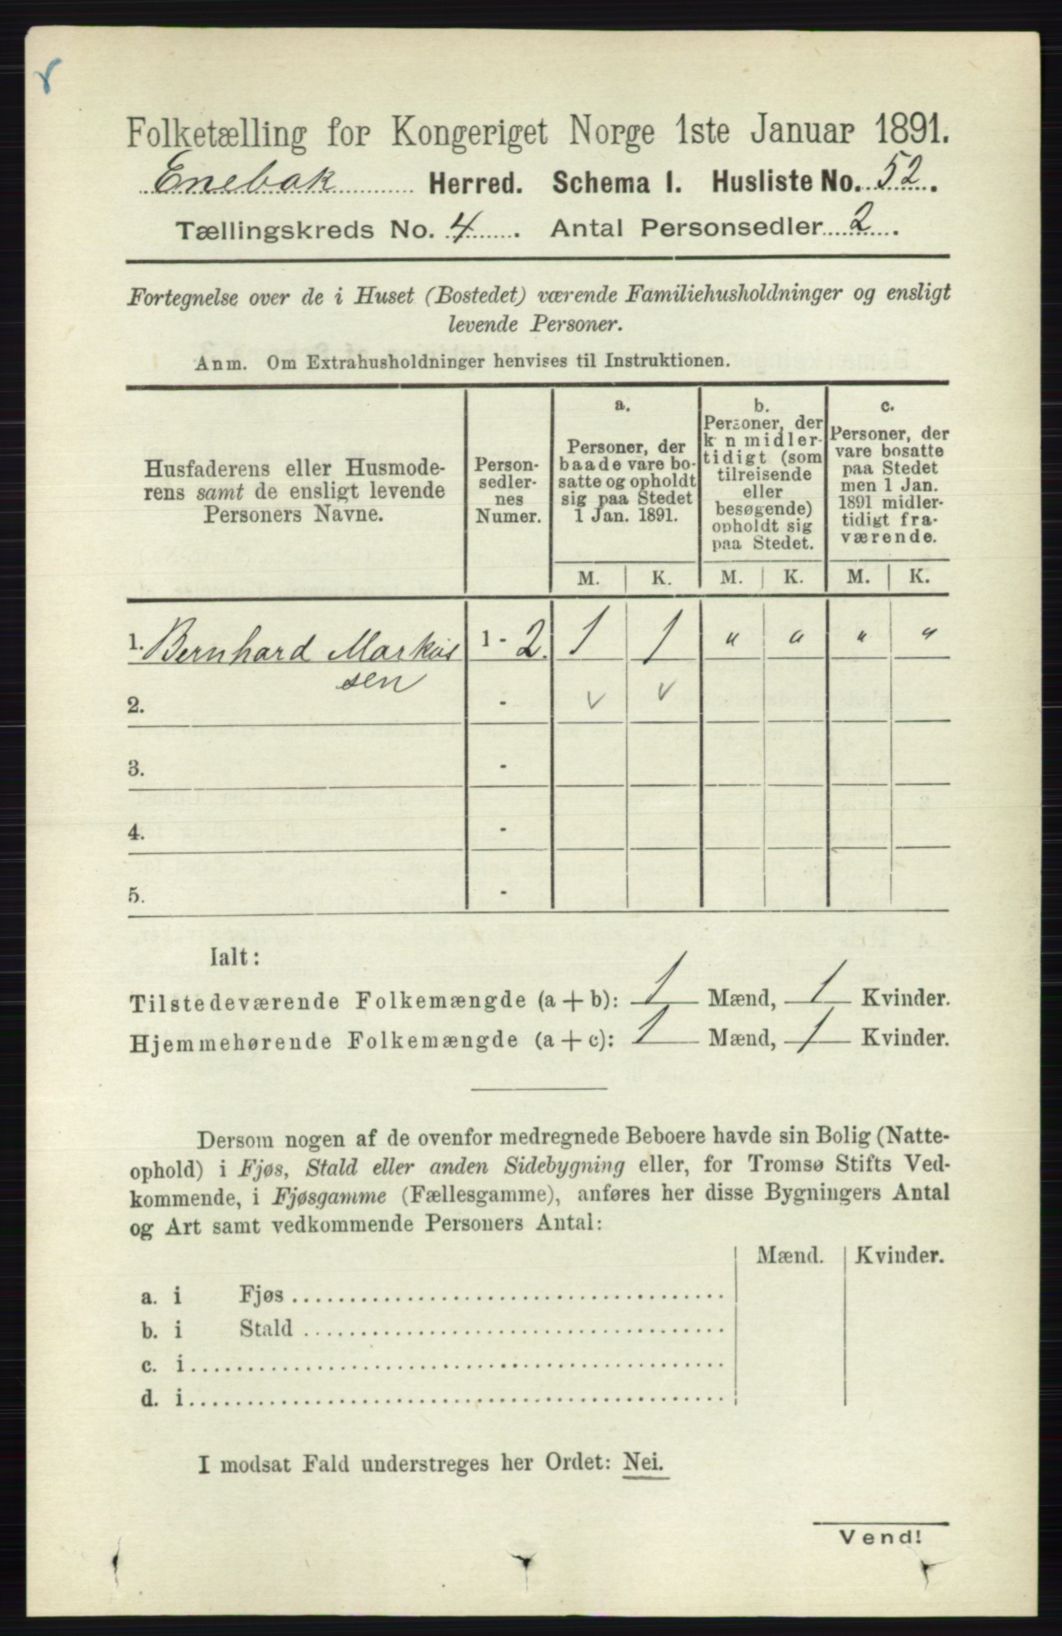 Folketælling for Kongeriget Norge 1ste Januar 1891.
Enebak Herred. Schema 1. Husliste No. 52.
Tællingskreds No. 4. Antal Personsedler 2.
Fortegnelse over de i Huset (Bostedet) værende Familiehusholdninger og ensligt
levende Personer.
Anm. Om Extrahusholdninger henvises til Instruktionen.
Husfaderens eller Husmode-
rens samt de ensligt levende
Personers Navne.
Person-
sedler-
nes
Numer.
a.
Personer, der
baade vare bo-
satte og opholdt
sig paa Stedet
1 Jan. 1891.
b.
Personer, der
k n midler-
tidigt (som
tilreisende
eller
besøgende)
opholdt sig
paa Stedet.
c.
Personer, der
vare bosatte
paa Stedet
men 1 Jan.
1891 midler-
tidigt fra-
værende.
M. K. M. K. M. K.
1. Bernhard Markus 1 - 2. 1 1 " " " "
sen
2. - v v
3. -
4. -
5. -
Ialt:
Tilstedeværende Folkemængde (a + b): 1 Mænd, 1 Kvinder.
Hjemmehørende Folkemængde (a + c): 1 Mænd, 1 Kvinder.
Dersom nogen af de ovenfor medregnede Beboere havde sin Bolig (Natte-
ophold) i Fjøs, Stald eller anden Sidebygning eller, for Tromsø Stifts Ved-
kommende, i Fjøsgamme (Fællesgamme), anføres her disse Bygningers Antal
og Art samt vedkommende Personers Antal:
Mænd. Kvinder.
a. i Fjøs
b. i Stald
c. i
d. i
I modsat Fald understreges her Ordet: Nei.
Vend!